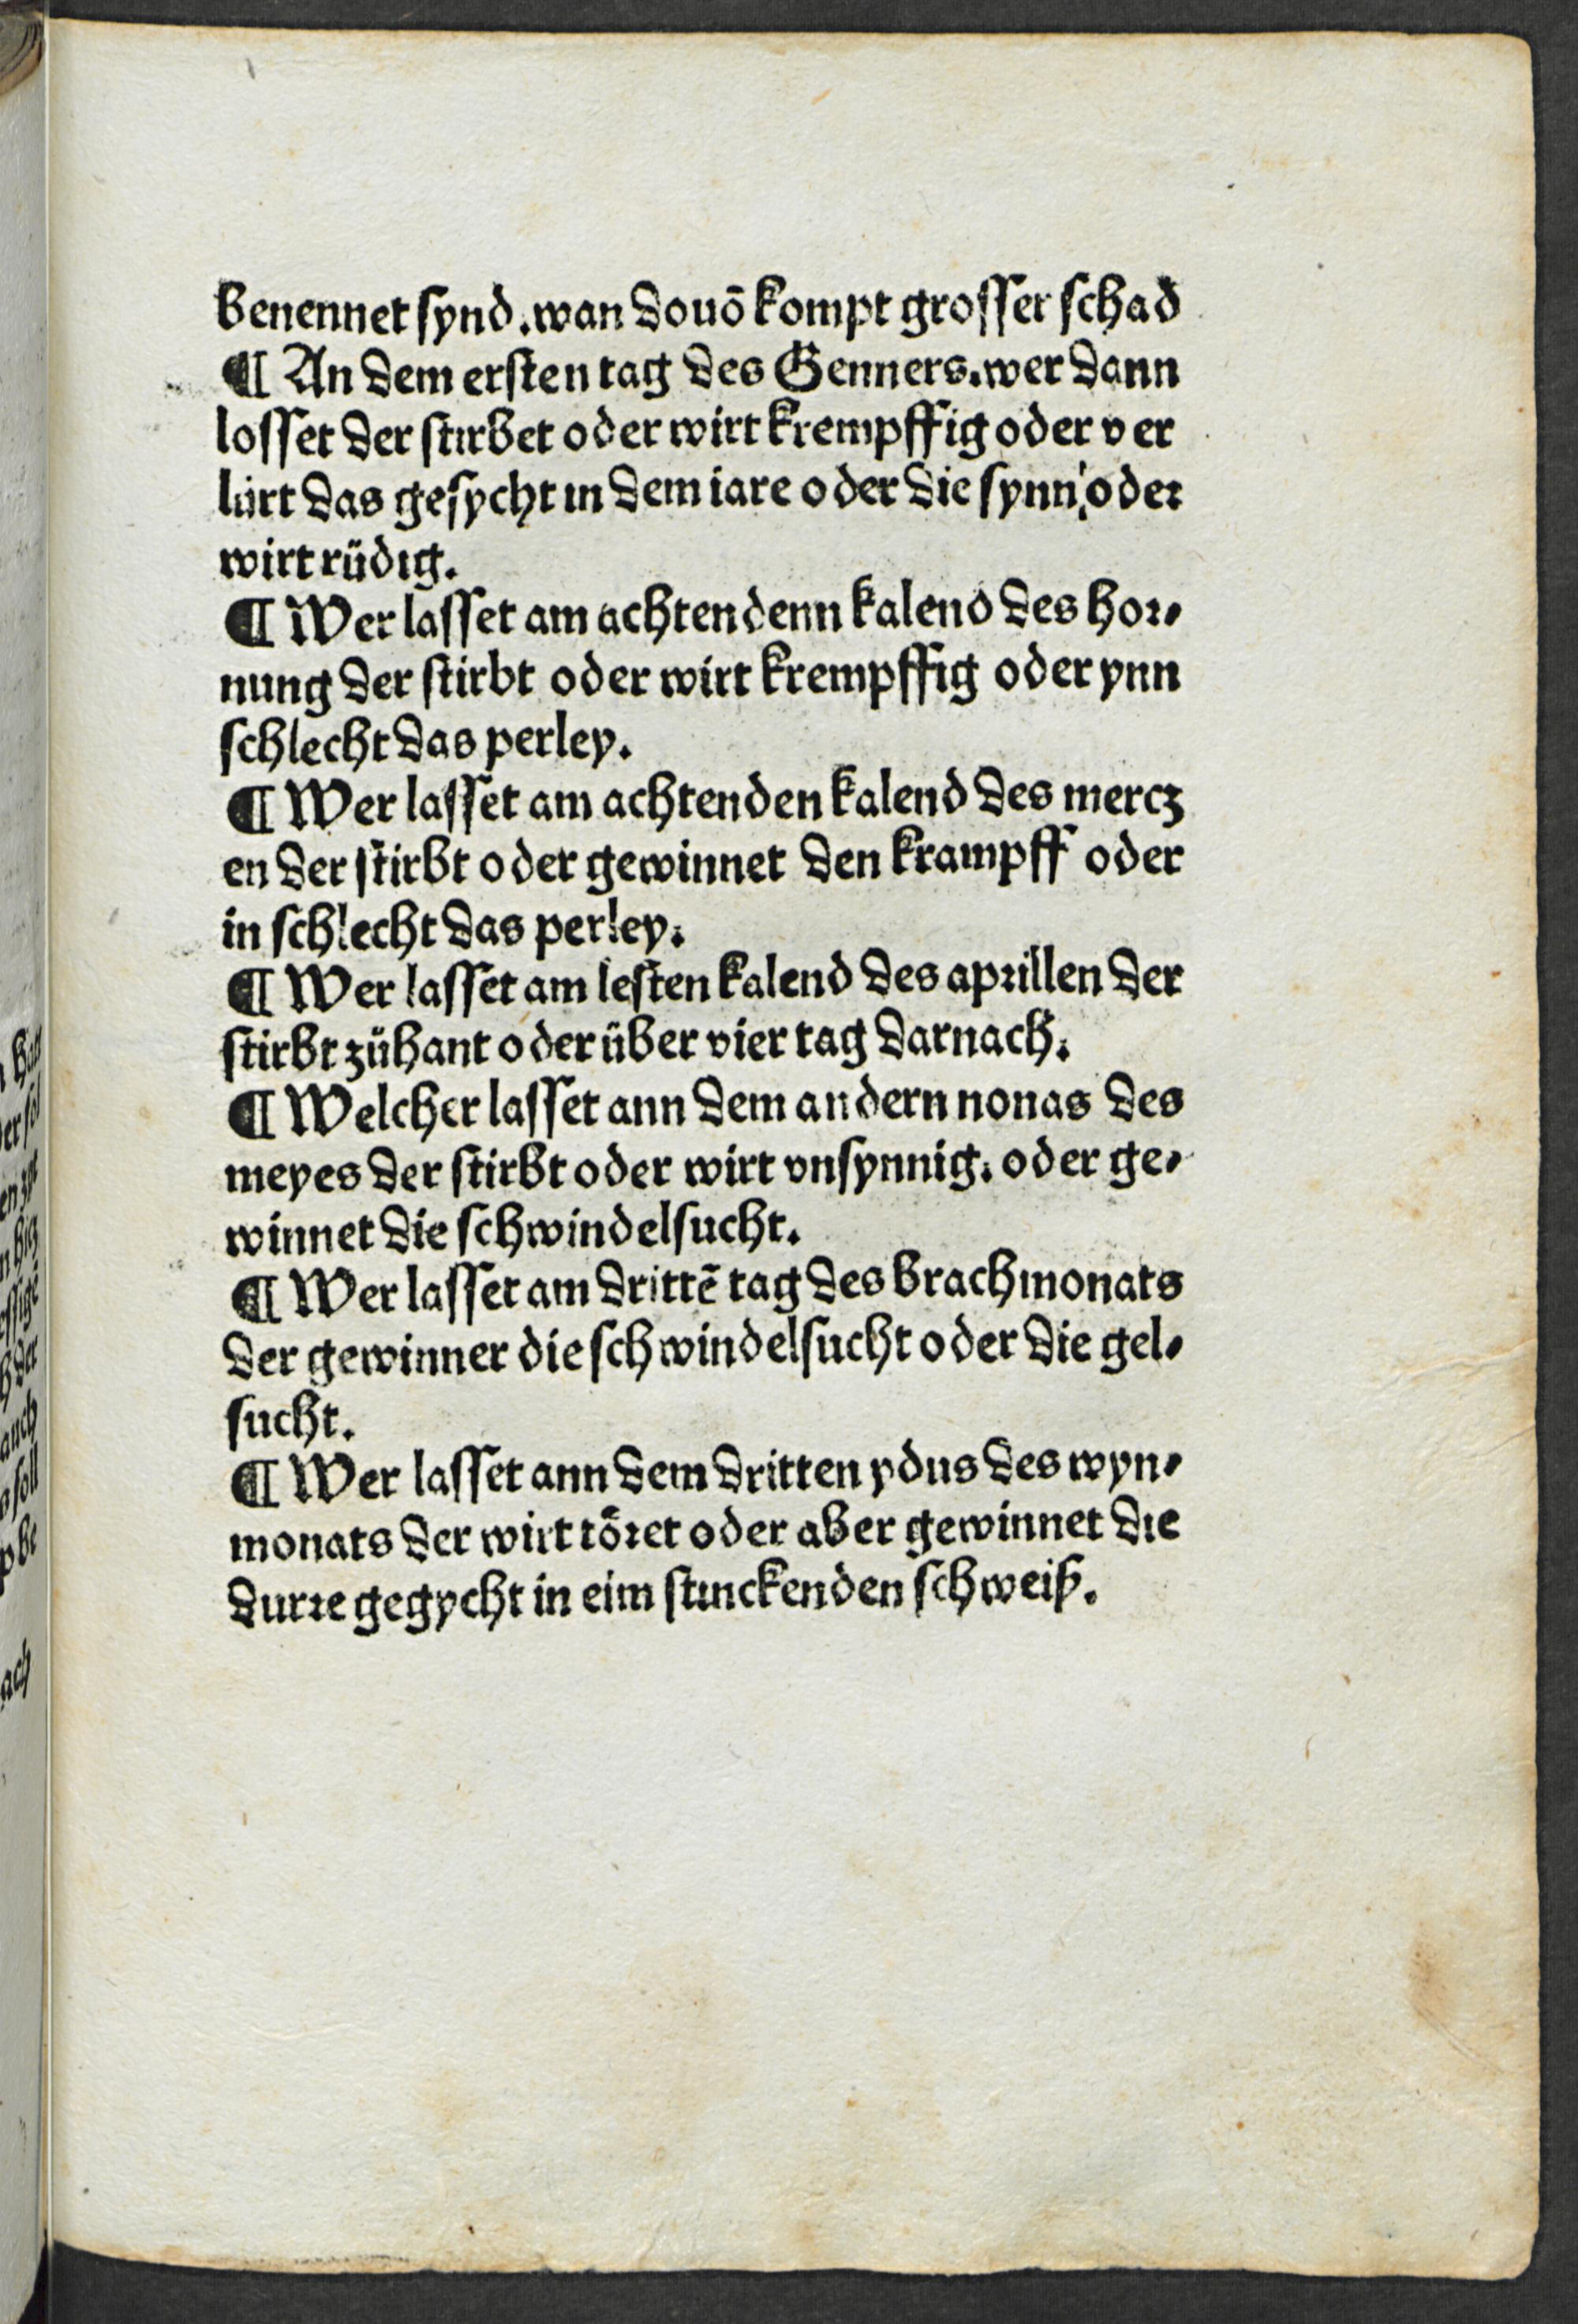 benennet synd. wan douō kompt grosser schad
¶ An dem ersten tag des Genners. wer dann
losset der stirbet oder wirt krempffig oder ver
lürt das gesycht in dem iare oder die synn oder
wirt rüdig.
¶ Wer lasset am achtendenn kalend des hor⸗
nung der stirbt oder wirt krempffig oder ynn
schlecht das perley.
¶ Wer lasset am achtenden kalend des mercz
en der stirbt oder gewinnet den krampff oder
in schlecht das perley.
¶ Wer lasset am lesten kalend des aprillen der
stirbt zühant oder über vier tag darnach.
¶ Welcher lasset ann dem andern nonas des
meyes der stirbt oder wirt vnsynnig. oder ge⸗
winnet die schwindelsucht.
¶ Wer lasset am drittē tag des brachmonats
der gewinner die schwindelsucht oder die gel⸗
sucht.
¶ Wer lasset ann dem dritten ydus des wyn⸗
monats der wirt töret oder aber gewinnet die
durre gegycht in eim stinckenden schweiß.